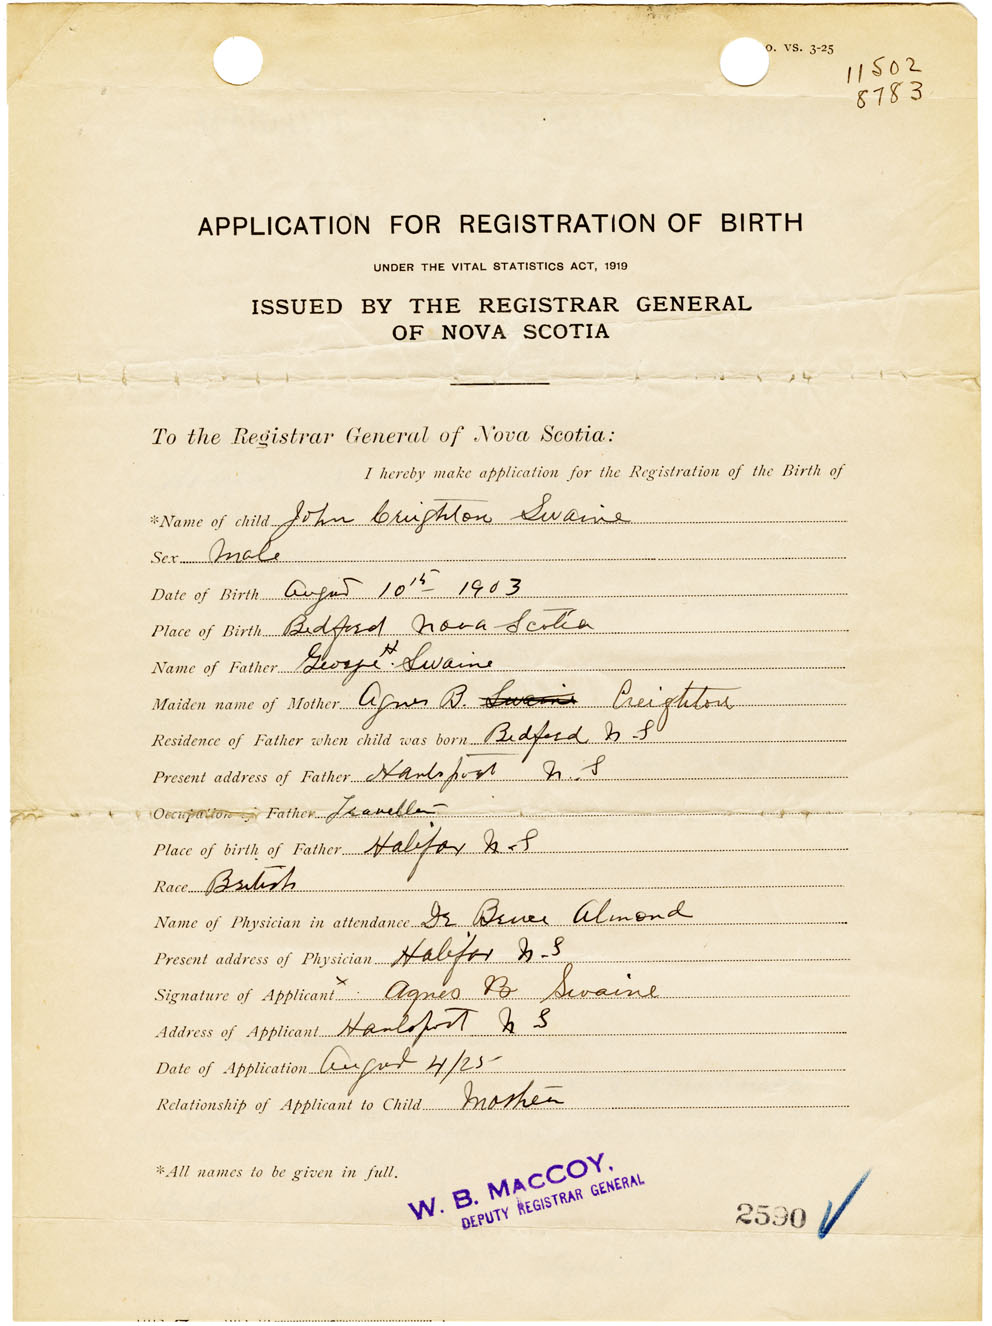 o. VS. 3-25
11502
8783
APPLICATION FOR REGISTRATION OF BIRTH
UNDER THE VITAL STATISTICS ACT, 1919
ISSUED BY THE REGISTRAR GENERAL
OF NOVA SCOTIA
To the Registrar General of Nova Scotia:
I hereby make application for the Registration of the Birth of
*Name of child John Creighton Swaine
Sex Male
Date of Birth August 10th 1903
Place of Birth Bedford Nova Scotia
Name of Father George H. Swaine
Maiden name of Mother Agnes B. Swaine Creighton
Residence of Father when child was born Bedford N-S
Present address of Father Hantsport N.S
Occupation of Father Traveller
Place of birth of Father Halifax N-S
Race British
Name of Physician in attendance Dr Bruce Almond
Present address of Physician Halifax N-S
Signature of Applicant x Agnes B Swaine
Address of Applicant Hantsport N S
Date of Application August 4/25
Relationship of Applicant to Child Mother
*All names to be given in full.
W. B. MACCOY,
DEPUTY REGISTRAR GENERAL
2590